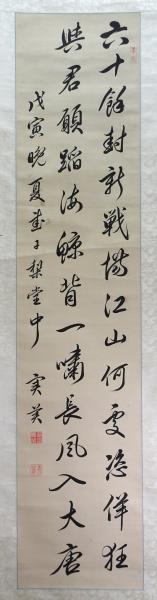 六十餘封新戰場江山何處恣佯狂
與君願蹈海鯨背一嘯長風入大唐
戊寅晚夏書于梨堂中 实美